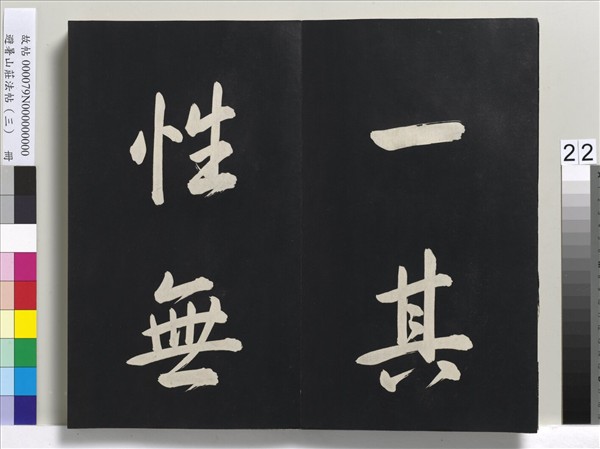 一其
性無
故帖 000079N000000000
避暑山莊法帖（三） 冊
22